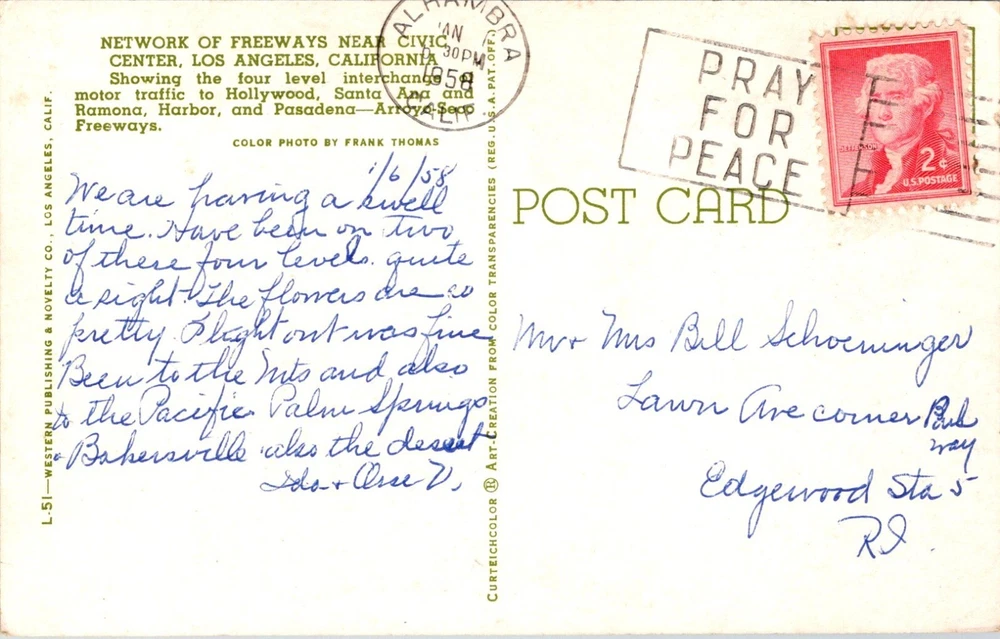 NETWORK OF FREEWAYS NEAR CIVIC
CENTER, LOS ANGELES, CALIFORNIA
Showing the four level interchange of
motor traffic to Hollywood, Santa Ana and
Ramona, Harbor, and Pasadena—Arroyo Seco
Freeways.
COLOR PHOTO BY FRANK THOMAS
1/6/58
We are having a swell
time. Have been on two
of these four levels. quite
a sight. The flowers are so
pretty. Flight out was fine
Been to the Mts and also
to the Pacific. Palm Springs
Bakersville also the desert
Ida + V.
L-51—WESTERN PUBLISHING & NOVELTY CO., LOS ANGELES, CALIF.
CURTEICHCOLOR ® ART-CREATION FROM COLOR TRANSPARENCIES (REG. U.S.A. PAT. OFF.)
ALHAMBRA
JAN
30 PM
1958
CALIF
PRAY
FOR
PEACE
JEFFERSON
2¢
U.S. POSTAGE
POST CARD
Mr + Mrs Bill Schoeninger
Lawn Ave corner Park
way
Edgewood Sta 5
RI.